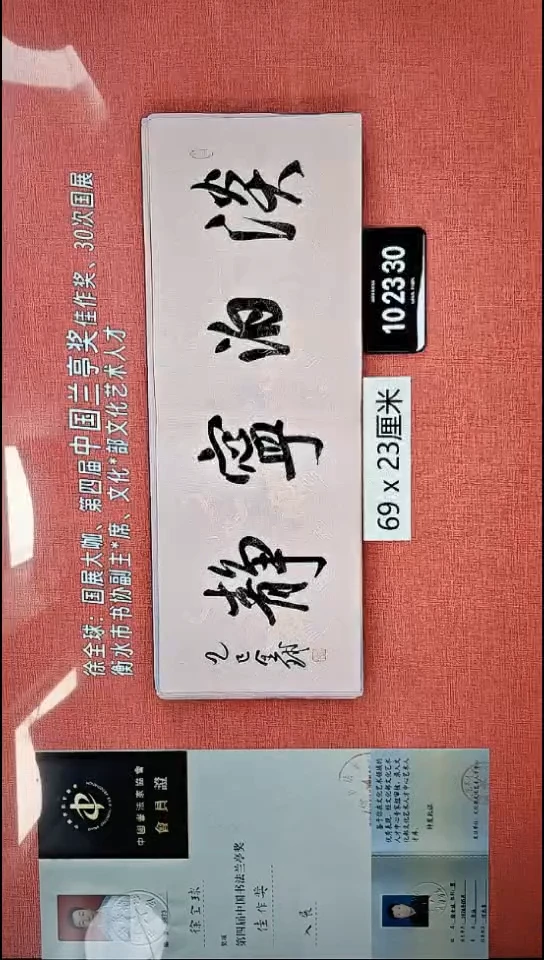 徐全球：国展大咖、第四届中国兰亭奖佳作奖、30次国展
衡水市书协副主*席、文化*部文化艺术人才
淡泊寧静
乙巳全球
10 23 30
69 x 23厘米
中國書法家協會
會員證
徐全球
第四届中国书法兰亭奖
佳作奖
入展
特发此证